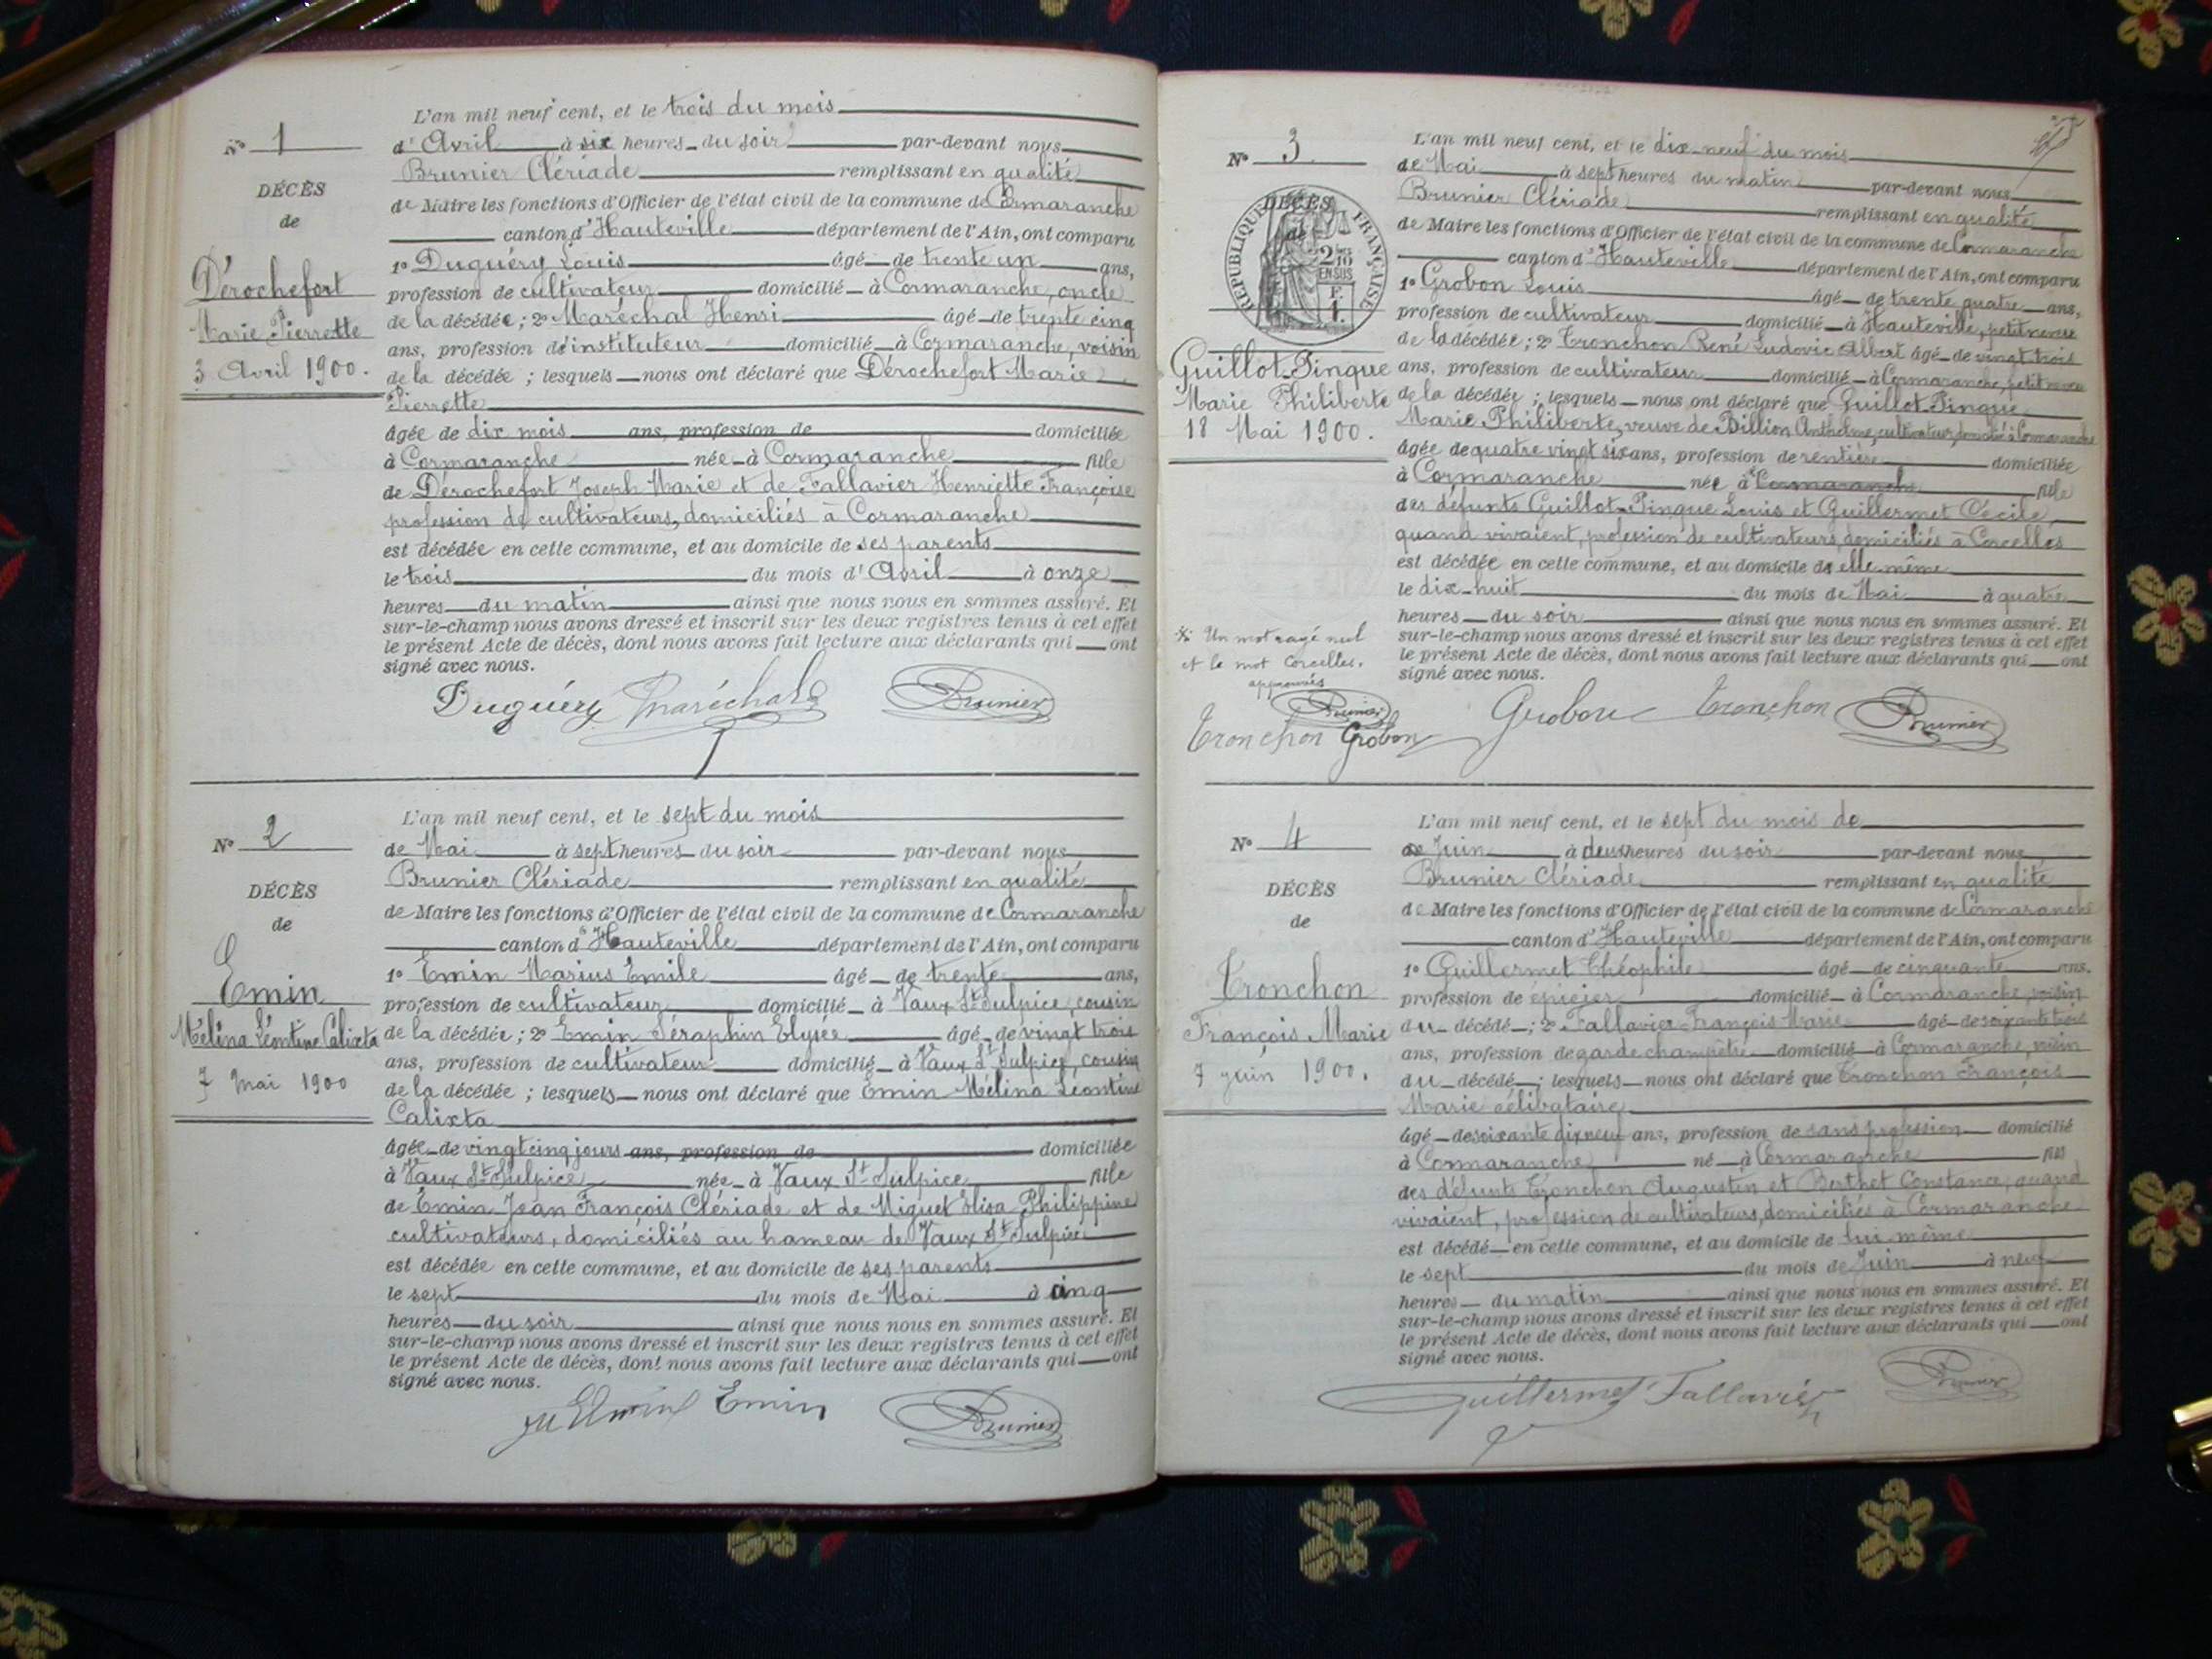 L'an mil neuf cent, et le trois du mois
N° 1
d'Avril à six heures du soir par-devant nous
Brunier Clériade remplissant en qualité
DÉCÈS
de Maire les fonctions d'Officier de l'état civil de la commune de Cormaranche
de
canton d'Hauteville département de l'Ain, ont comparu
1° Duguéry Louis âgé de trente un ans,
Dérochefort
profession de cultivateur domicilié à Cormaranche, oncle
Marie Pierrette
de la décédée ; 2° Maréchal Henri âgé de trente cinq
ans, profession d'instituteur domicilié à Cormaranche, voisin
3 Avril 1900.
de la décédée ; lesquels nous ont déclaré que Dérochefort Marie
Pierrette
âgée de dix mois ans, profession de domiciliée
à Cormaranche née à Cormaranche fille
de Dérochefort Joseph Marie et de Fallavier Henriette Françoise
profession de cultivateurs, domiciliés à Cormaranche
est décédée en cette commune, et au domicile de ses parents
le trois du mois d'Avril à onze
heures du matin ainsi que nous nous en sommes assuré. Et
sur-le-champ nous avons dressé et inscrit sur les deux registres tenus à cet effet
le présent Acte de décès, dont nous avons fait lecture aux déclarants qui ont
signé avec nous.
Duguéry Maréchal Brunier
L'an mil neuf cent, et le sept du mois
N° 2
de Mai à sept heures du soir par-devant nous
Brunier Clériade remplissant en qualité
DÉCÈS
de Maire les fonctions d'Officier de l'état civil de la commune de Cormaranche
de
canton d'Hauteville département de l'Ain, ont comparu
1° Emin Marius Emile âgé de trente ans,
Emin
profession de cultivateur domicilié à Vaux St Sulpice, cousin
Mélina Léontine Calixta
de la décédée ; 2° Emin Séraphin Elysée âgé de vingt trois
ans, profession de cultivateur domicilié à Vaux St Sulpice, cousin
7 Mai 1900
de la décédée ; lesquels nous ont déclaré que Emin Mélina Léontine
Calixta
âgée de vingt cinq jours ans, profession de domiciliée
à Vaux St Sulpice née à Vaux St Sulpice fille
de Emin Jean François Clériade et de Miguet Elisa Philippine
cultivateurs, domiciliés au hameau de Vaux St Sulpice
est décédée en cette commune, et au domicile de ses parents
le sept du mois de Mai à cinq
heures du soir ainsi que nous nous en sommes assuré. Et
sur-le-champ nous avons dressé et inscrit sur les deux registres tenus à cet effet
le présent Acte de décès, dont nous avons fait lecture aux déclarants qui ont
signé avec nous.
Emin Emin Brunier
L'an mil neuf cent, et le dix-neuf du mois
N° 3
de Mai à sept heures du matin par-devant nous
Brunier Clériade remplissant en qualité
DÉCÈS
de
RÉPUBLIQUE FRANÇAISE
2/10
EN SUS
F.
1.
de Maire les fonctions d'Officier de l'état civil de la commune de Cormaranche
canton d'Hauteville département de l'Ain, ont comparu
1° Grobon Louis âgé de trente quatre ans,
profession de cultivateur domicilié à Hauteville, petit neveu
de la décédée ; 2° Tronchon René Ludovic Albert âgé de vingt trois
Guillot-Pinque
ans, profession de cultivateur domicilié à Cormaranche, petit neveu
Marie Philiberte
de la décédée ; lesquels nous ont déclaré que Guillot-Pinque
18 Mai 1900.
Marie Philiberte, veuve de Billion Anthelme, cultivateur, domicilié à Cormaranche
âgée de quatre vingt six ans, profession de rentière domiciliée
à Cormaranche née à Cormaranche fille
des défunts Guillot-Pinque Louis et Guillermet Cécile,
quand vivaient, profession de cultivateurs, domiciliés à Corcelles
est décédée en cette commune, et au domicile de elle-même
le dix-huit du mois de Mai à quatre
heures du soir ainsi que nous nous en sommes assuré. Et
sur-le-champ nous avons dressé et inscrit sur les deux registres tenus à cet effet
le présent Acte de décès, dont nous avons fait lecture aux déclarants qui ont
signé avec nous.
Un mot rayé nul
et le mot Corcelles.
approuvés
Brunier
Tronchon Grobon
Grobon Tronchon Brunier
L'an mil neuf cent, et le sept du mois de
N° 4
de Juin à deux heures du soir par-devant nous
Brunier Clériade remplissant en qualité
DÉCÈS
de Maire les fonctions d'Officier de l'état civil de la commune de Cormaranche
de
canton d'Hauteville département de l'Ain, ont comparu
1° Guillermet Théophile âgé de cinquante ans,
Tronchon
profession de épicier domicilié à Cormaranche, voisin
François Marie
du décédé ; 2° Fallavier François Marie âgé de soixante trois
ans, profession de garde champêtre domicilié à Cormaranche, voisin
7 Juin 1900.
du décédé ; lesquels nous ont déclaré que Tronchon François
Marie célibataire
âgé de soixante dix neuf ans, profession de sans profession domicilié
à Cormaranche né à Cormaranche fils
des défunts Tronchon Augustin et Berthet Constance, quand
vivaient, profession de cultivateurs, domiciliés à Cormaranche
est décédé en cette commune, et au domicile de lui-même
le sept du mois de Juin à neuf
heures du matin ainsi que nous nous en sommes assuré. Et
sur-le-champ nous avons dressé et inscrit sur les deux registres tenus à cet effet
le présent Acte de décès, dont nous avons fait lecture aux déclarants qui ont
signé avec nous.
Guillermet Fallavier Brunier